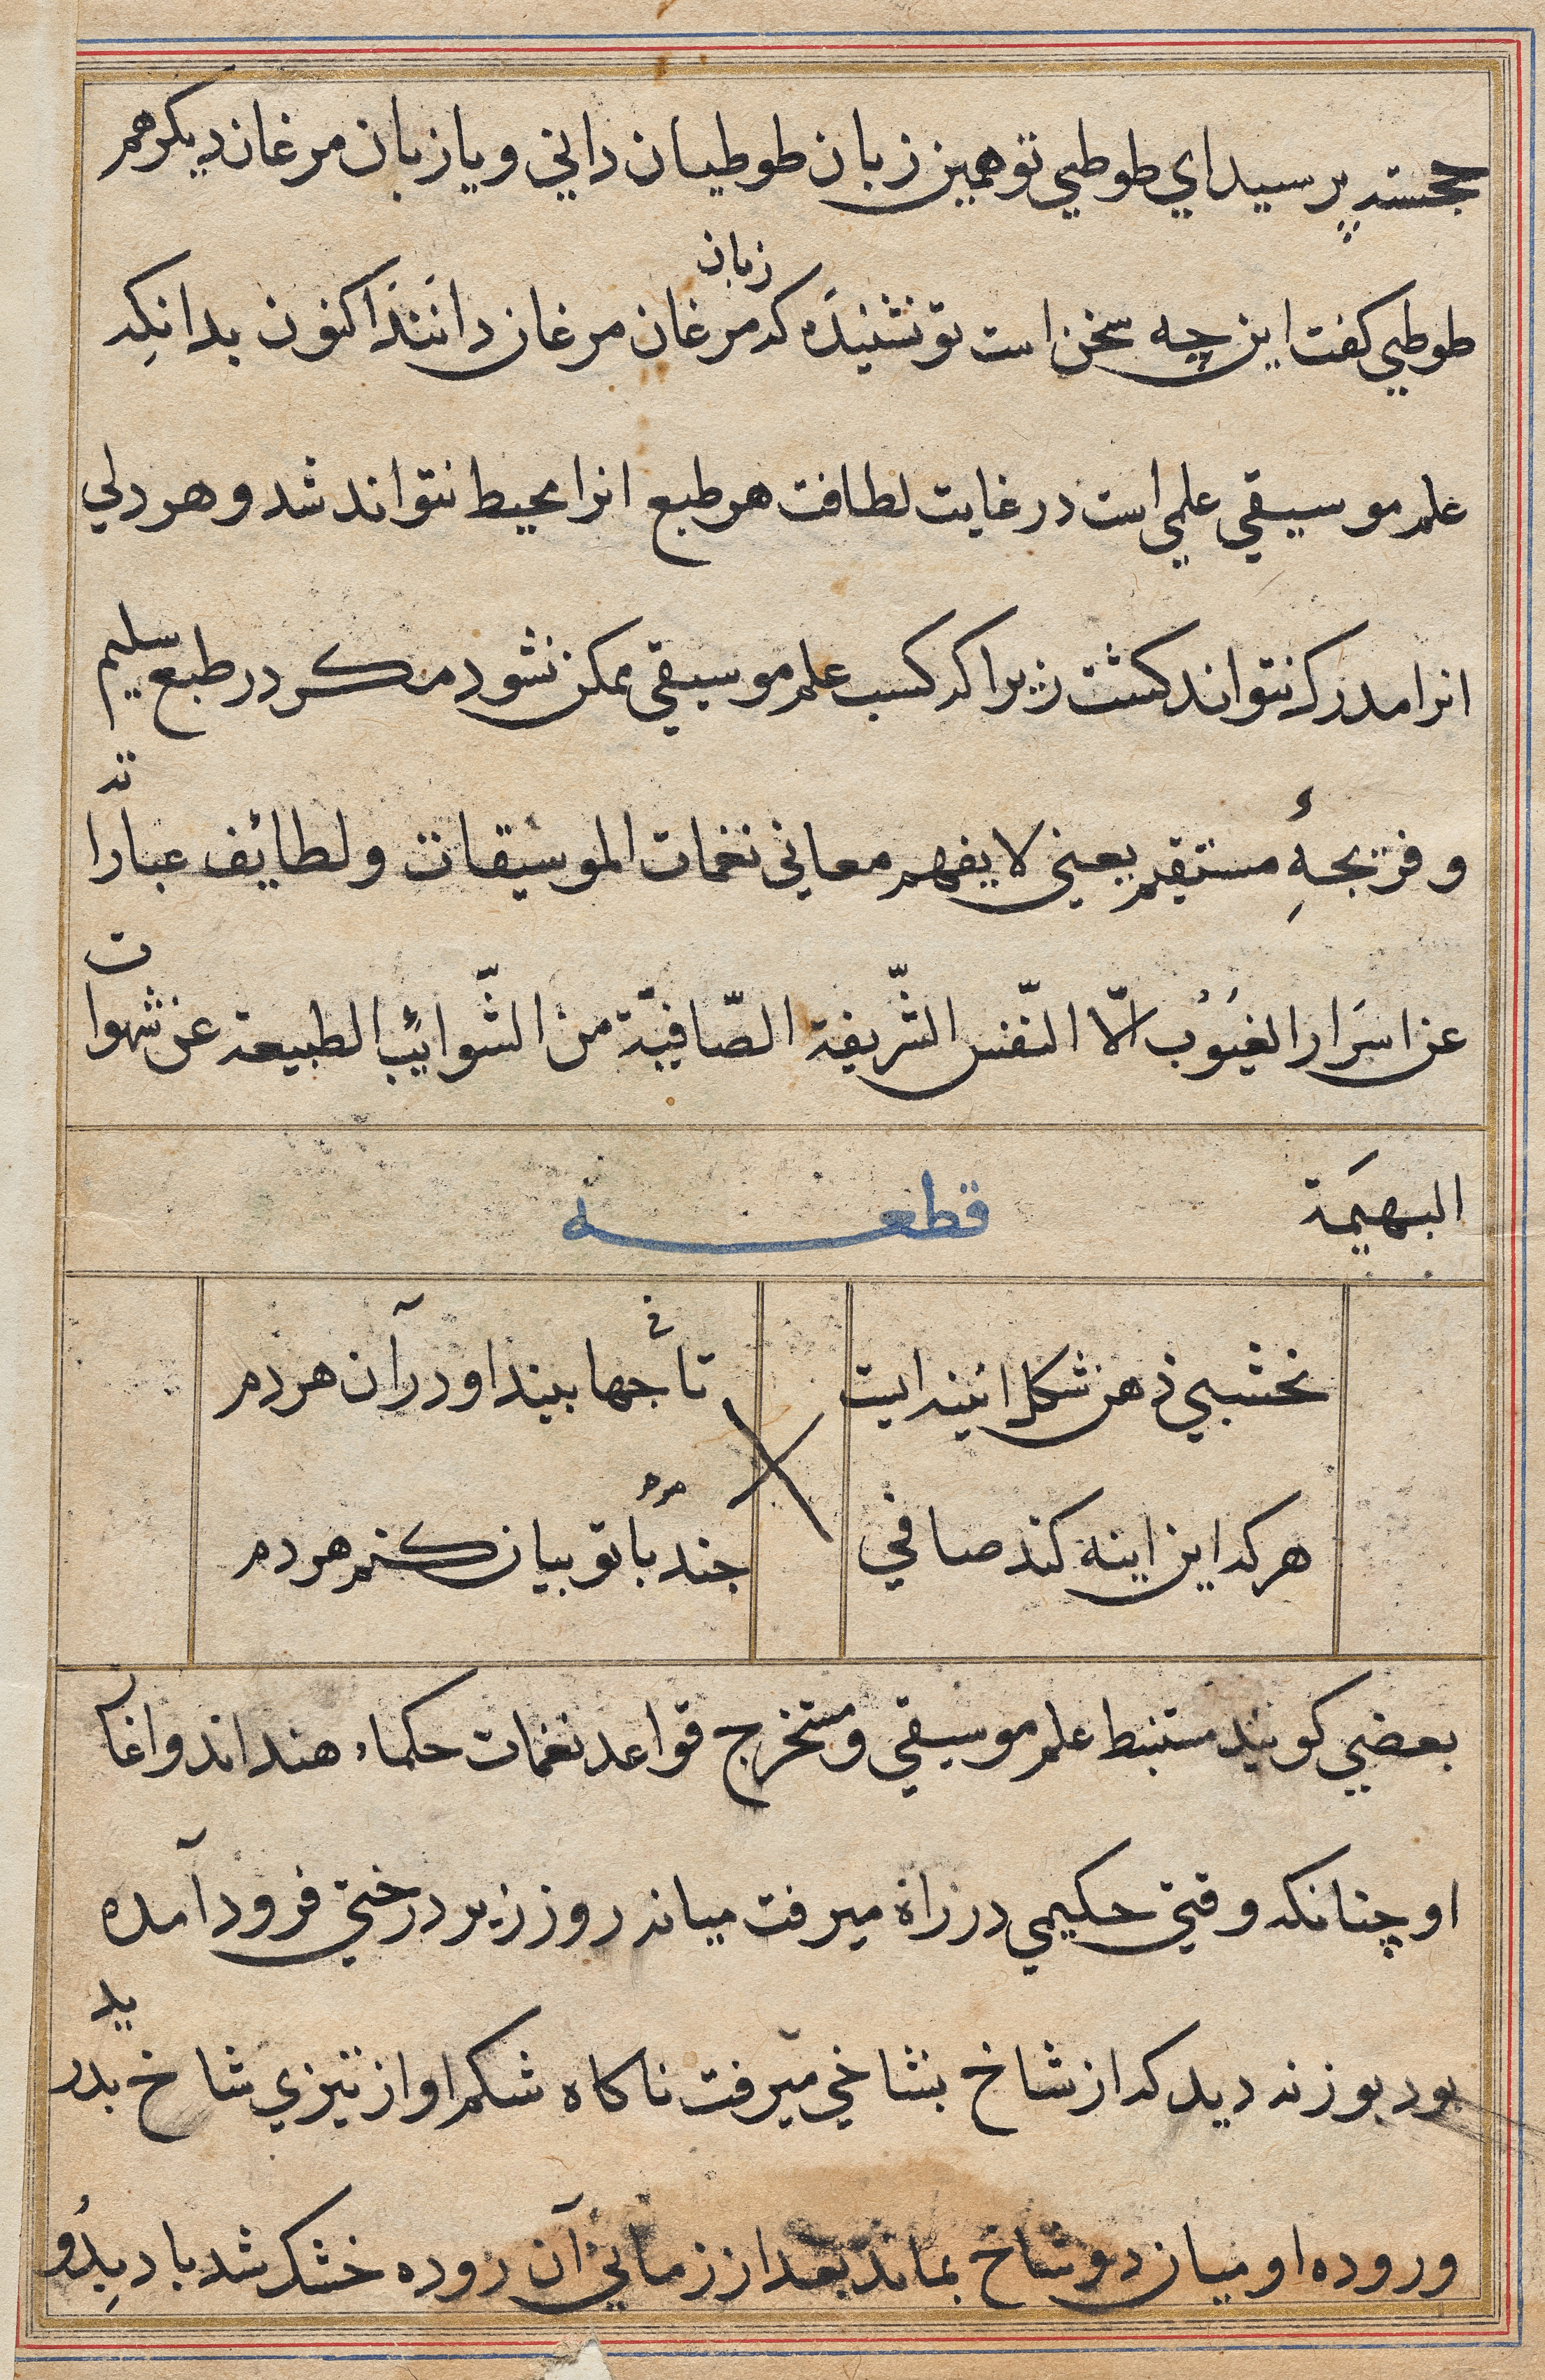 حجسته پرسید اي طوطي تو همین زبان طوطیان داني و یا زبان مرغان دیکر هم
زبان
طوطي کفت این چه سخن است تو نشنیدَه که مرغان مرغان دانَندَ اکنون بدانکِه
علم موسیقي علمي است در غایت لطافت هر طبع انرا محیط نتواند شد و هر دلي
انرا مدرک نتواند کشت زیرا که کسب علم موسیقي ممکن نشود مکر در طبع سلیم
و قریحهٔ مستقیم یعني لا یفهم معاني نغمات الموسیقات و لطائف عباراته
عن اسَرار الغیُوب الّا النّفس الشّریفة الصّافیّة من الشّوائب الطبیعة عن شهوات
البهیَمة
قطعه
نخشبي ذهن شکل ائینه ایست
تا جها بیند او در آن هر دم
هر که این اینه کند صافي
جند با تو بیان کنم هر دم
بعضي کویند مستنبط علم موسیقي و مستخرج قواعد نغمات حکماء هند اند و اغآ
او چنانکه وقتي حکیمي در راه میرفت میانه روز زیر درختي فرود آمده
بود بوزنه دید که از شاخ بشاخي میرفت ناکاه شکم او از تیزي شاخ بدرید
و روده او میان دو شاخ بماند بعد از زماني آن روده خشک شد باد بِدُو